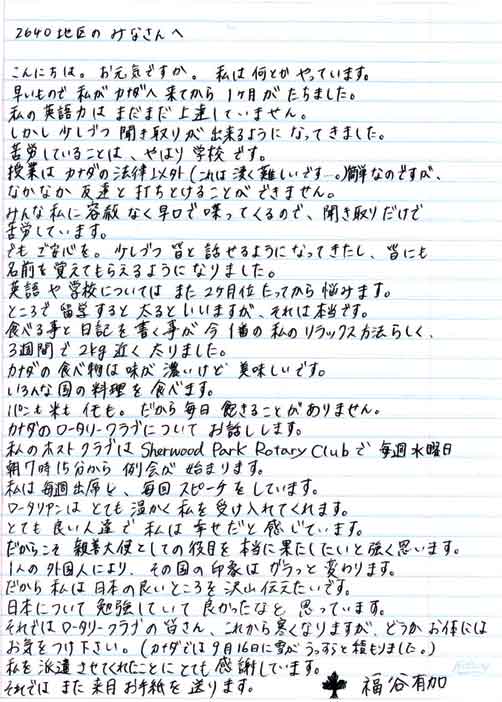 2640地区の みなさんへ
こんにちは。お元気ですか。私は何とか やっています。
早いもので 私が カナダへ 来てから 1ヶ月が たちました。
私の 英語力は まだまだ 上達 していません。
しかし 少しづつ 聞き取りが 出来るように なってきました。
苦労していることは、やはり 学校 です。
授業は カナダの 法律以外(これは 凄く 難しいです…。)簡単なのですが、
なかなか 友達と 打ちとけることが できません。
みんな 私に 容赦 なく 早口で 喋ってくるので、聞き取りだけで
苦労しています。
でも ご安心を。少しづつ 皆と 話せるように なってきたし、皆にも
名前を 覚えてもらえるように なりました。
英語 や 学校については また 2ヶ月位 たってから 悩みます。
ところで 留学すると 太ると いいますが、それは 本当です。
食べる事と 日記を 書く事が 今 1番の 私の リラックス方法らしく、
3週間で 2kg 近く 太りました。
カナダの 食べ物は 味が 濃いけど 美味しいです。
いろんな 国の 料理を 食べます。
パンも 米も 何も。だから 毎日 飽きることが ありません。
カナダの ロータリークラブについて お話しします。
私の ホストクラブは Sherwood Park Rotary Club で 毎週 水曜日
朝7時15分から 例会が 始まります。
私は 毎週 出席し、毎回 スピーチを しています。
ロータリアンは とても 温かく 私を 受け入れてくれます。
とても 良い人達で 私は 幸せだと 感じています。
だからこそ 親善大使としての役目を 本当に 果たしたいと 強く 思います。
1人の 外国人により、その国の 印象は ガラっと 変わります。
だから 私は 日本の 良いところを 沢山 伝えたいです。
日本について 勉強していて 良かったなと 思っています。
それでは ロータリークラブの 皆さん、これから 寒くなりますが、どうか お体には
お気をつけ 下さい。(カナダでは 9月16日に 雪が うっすらと 積もりました。)
私を 派遣 させてくれたことに とても 感謝しています。
それでは また 来月 お手紙を 送ります。 福谷有加